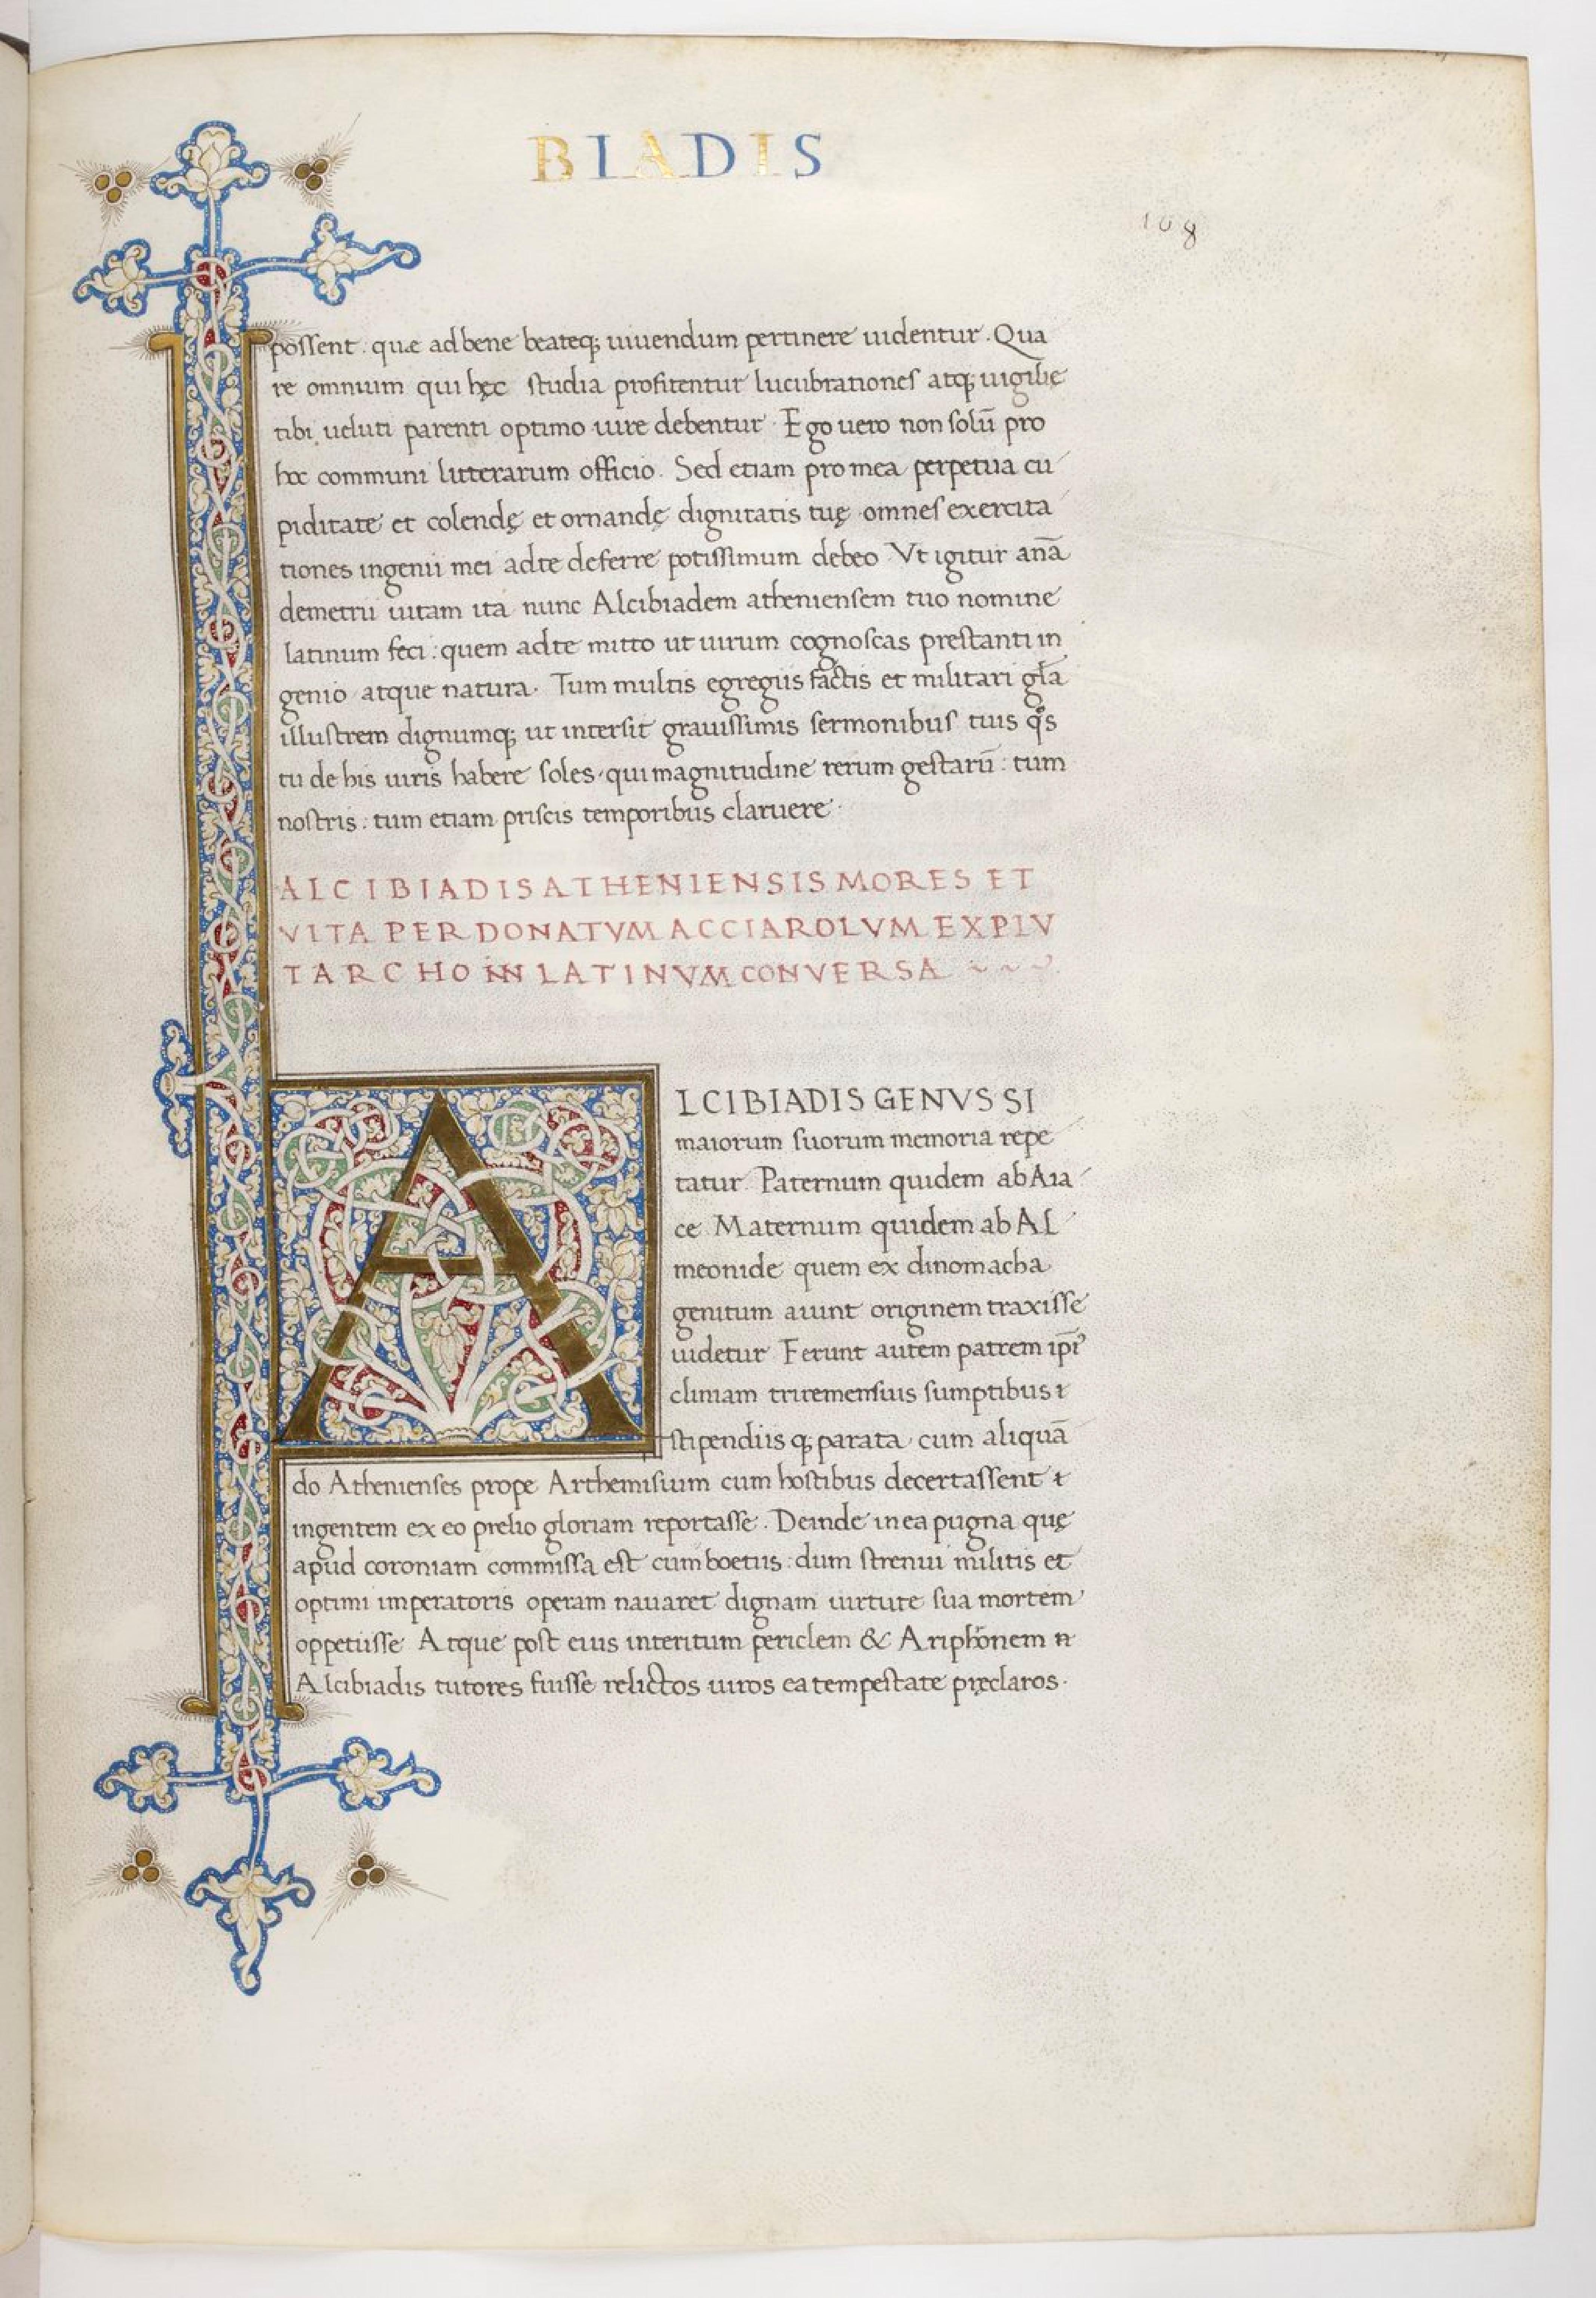 BIADIS
108
possent: quæ ad bene beateq; uiuendum pertinere uidentur. Qua
re omnium qui hęc studia profitentur lucubrationes atq; uigilię
tibi ueluti parenti optimo iure debentur. Ego uero non solū pro
hoc communi litterarum officio. Sed etiam pro mea perpetua cu
piditate et colendę et ornandę dignitatis tuę omnes exercita
tiones ingenii mei ad te deferre potissimum debeo. Vt igitur anā
demetrii uitam ita nunc Alcibiadem atheniensem tuo nomine
latinum feci: quem ad te mitto ut uirum cognoscas prestanti in
genio atque natura. Tum multis egregiis factis et militari gl̄a
illustrem dignumq; ut intersit grauissimis sermonibus tuis q̊s
tu de his uiris habere soles. qui magnitudine rerum gestarū: tum
nostris: tum etiam priscis temporibus claruere.
ALCIBIADIS ATHENIENSIS MORES ET
VITA PER DONATVM ACCIAROLVM EX PLV
TARCHO IN LATINVM CONVERSA
ALCIBIADIS GENVS SI
maiorum suorum memoria repe
tatur. Paternum quidem ab Aia
ce. Maternum quidem ab Al
meonide quem ex dinomacha
genitum aiunt originem traxisse
uidetur. Ferunt autem patrem ip̄i᷒
cliniam triremensuis sumptibus ⁊
stipendiis q; parata cum aliquā
do Athenienses prope Arthemisium cum hostibus decertassent ⁊
ingentem ex eo prelio gloriam reportasse. Deinde in ea pugna quę
apud coroniam commissa est cum boetiis: dum strenui militis et
optimi imperatoris operam nauaret dignam uirtute sua mortem
oppetiisse. Atque post eius interitum periclem & Ariphonem
Alcibiadis tutores fuisse relictos uiros ea tempestate pręclaros.